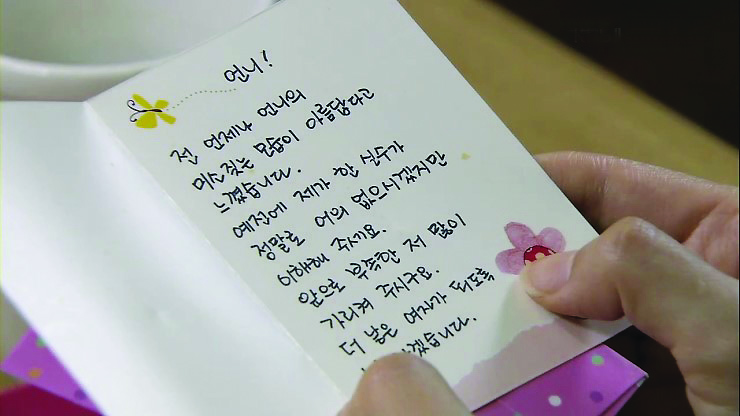 언니!
전 언제나 언니의
미소짓는 모습이 아름답다고
느꼈습니다.
예전에 제가 한 실수가
정말로 어의 없으시겠지만
이해해 주세요.
앞으로 부족한 저 많이
가리켜 주시구요.
더 낳은 여자가 되도록
겠습니다.